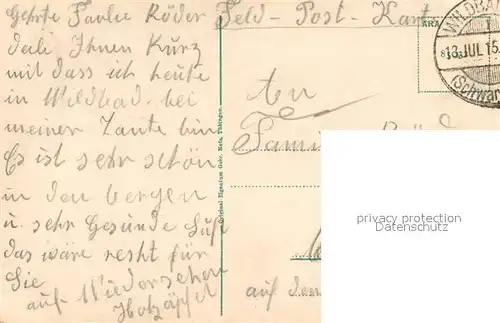 Geehrte Familie Röder
deile Ihnen Kurz
mit dass ich heute
in Wildbad. bei
meiner Tante bin
Es ist sehr schön
in den bergen
u. sehr Gesunde Luft
das wäre resht für
Sie
auf Wiedersehen
Holzäpfel
Feld-Post-Kart
An
Fami
auf den
Original Eigentum Gebr. Metz, Tübingen
WILDBA
13 JUL 15
(Schwar
privacy protection
Datenschutz